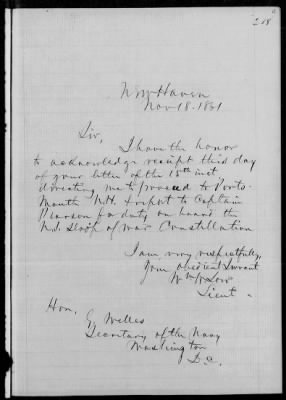 218
New Haven
Nov 18. 1861
Sir,
I have the honor
to acknowledge receipt this day
of your letter of the 15th inst
directing me to proceed to Ports-
mouth N.H. & report to Captain
Pearson for duty on board the
U.S. Sloop of war Constellation
I am very respectfully
Your obedient Servant
Wm W Low
Lieut.
Hon.
G Welles
Secretary of the Navy
Washington
D.C.